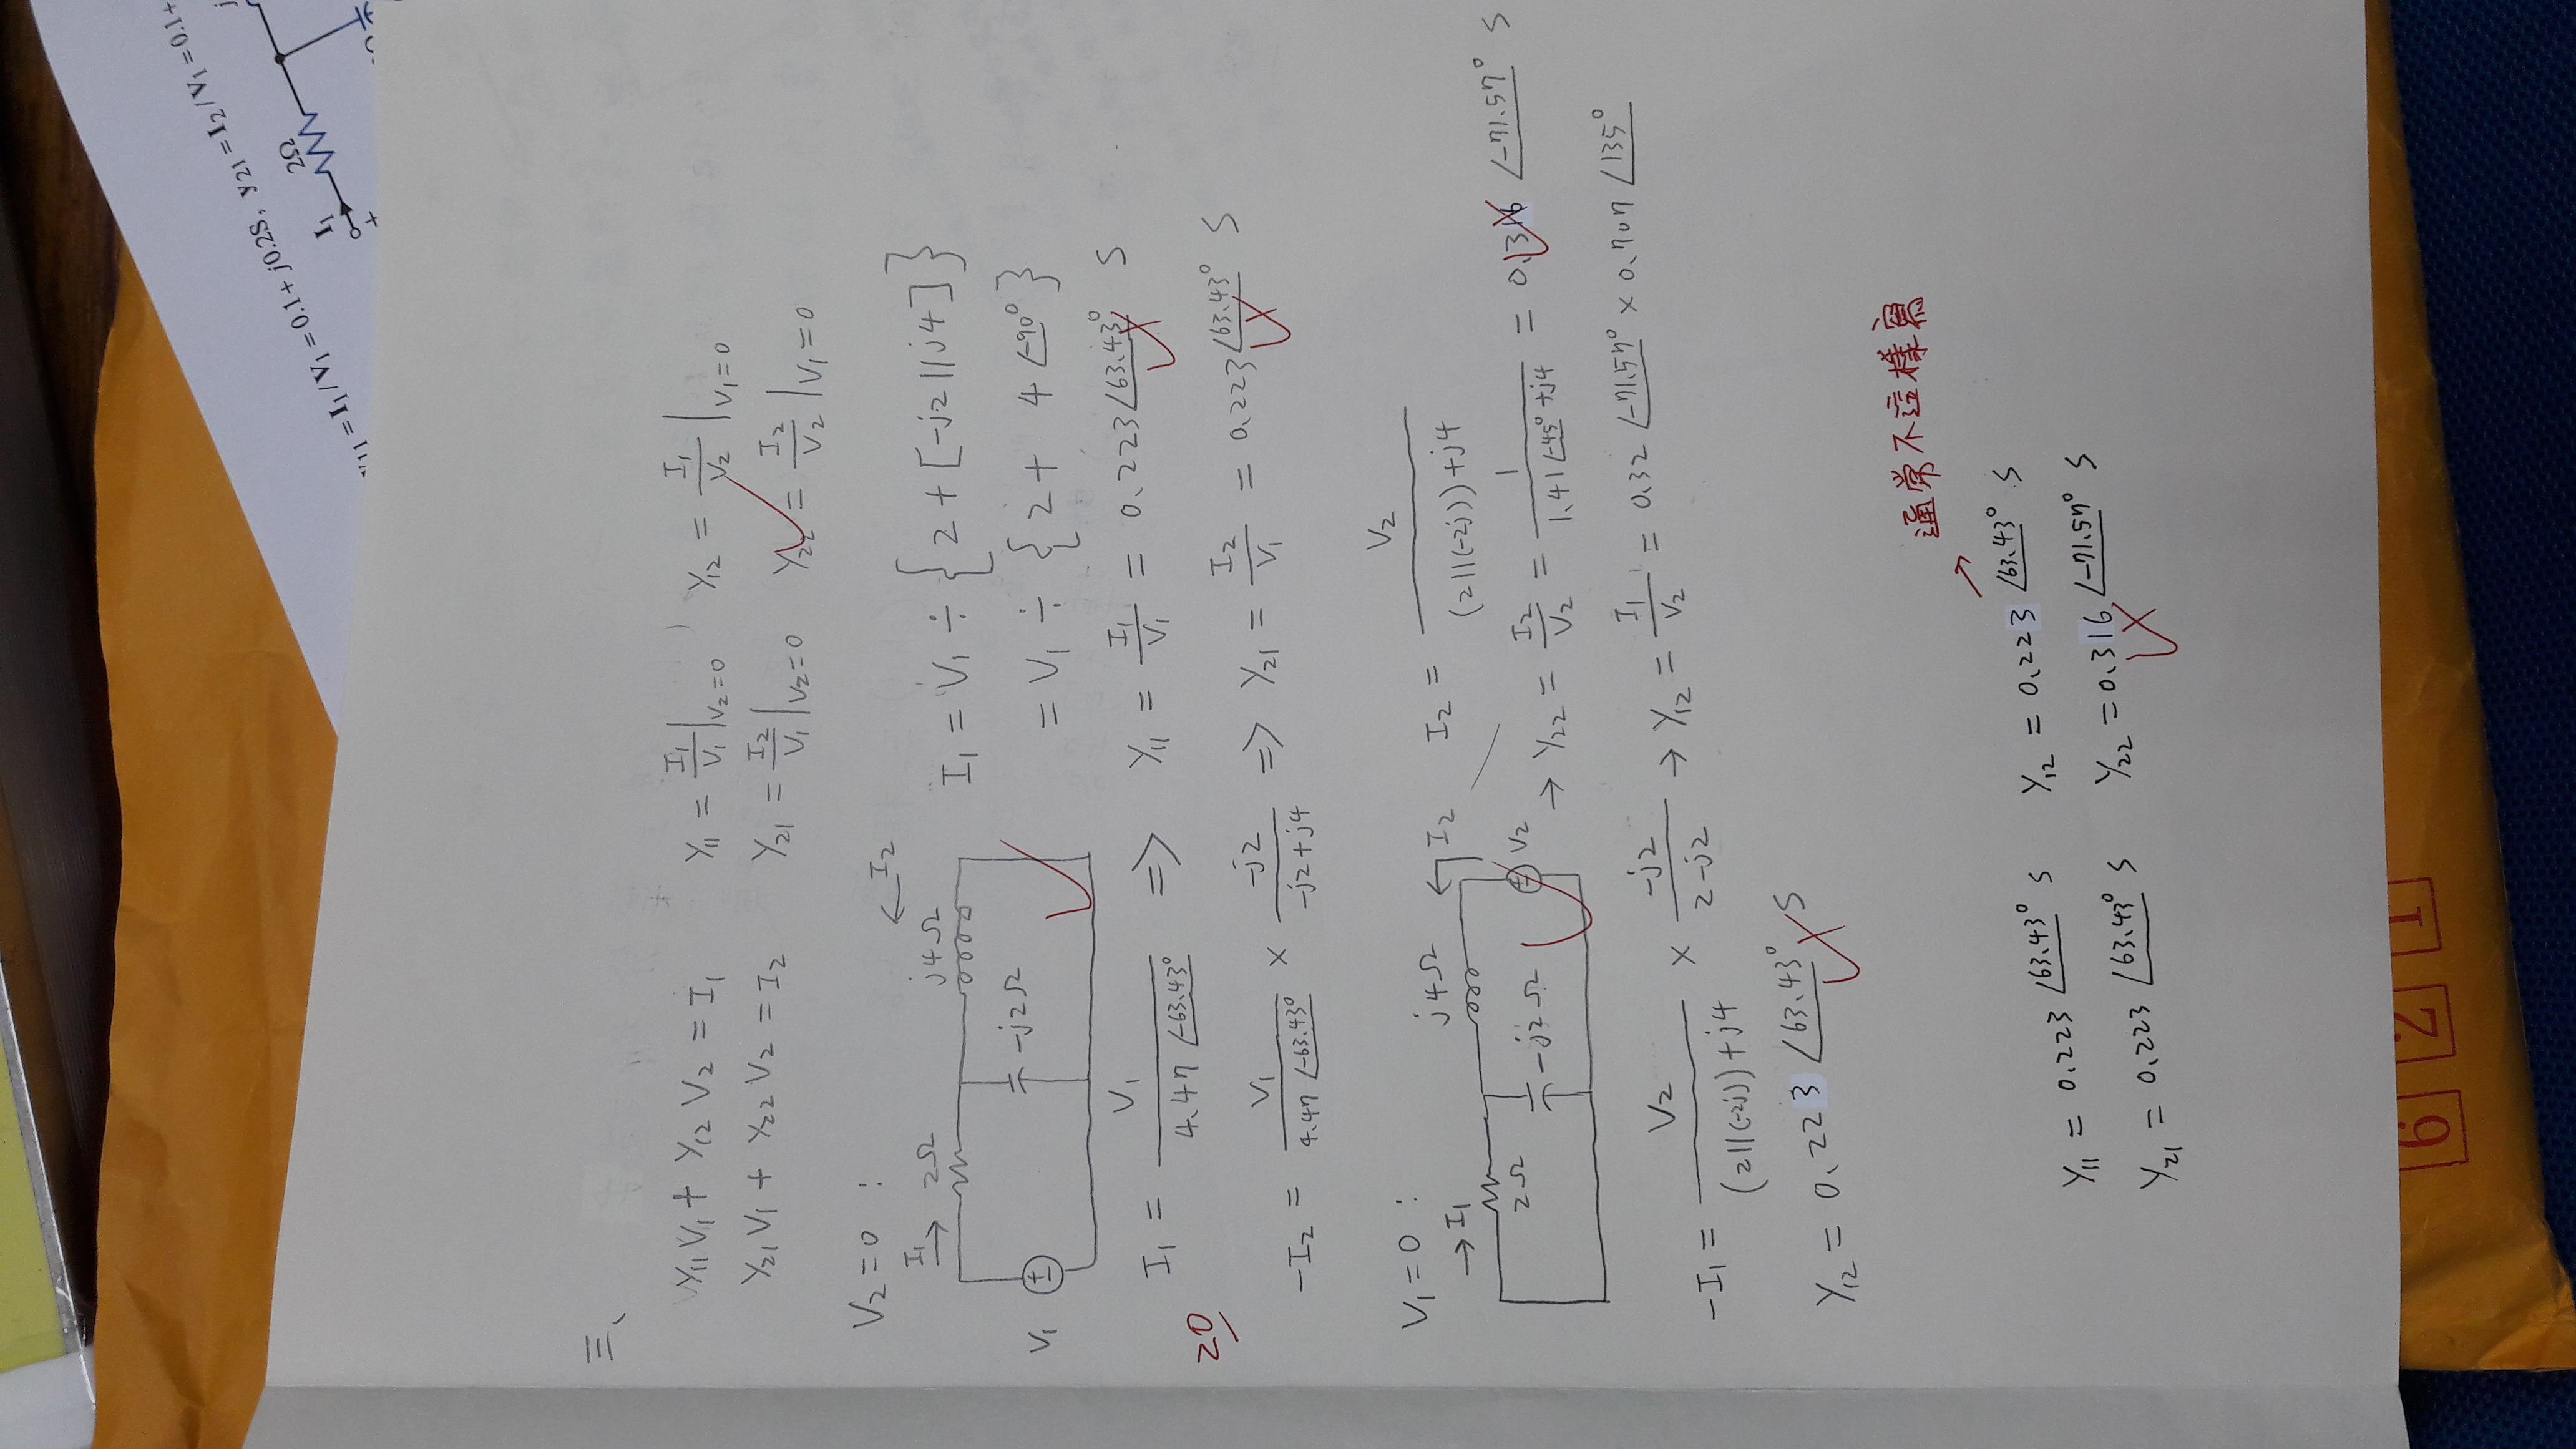 y11 = I1/V1 = 0.1 + j0.2S, y21 = I2/V1 = 0.1+
I1 2Ω j
+
三、
Y11V1 + Y12 V2 = I1 Y11 = I1/V1 |V2=0 Y12 = I1/V2 |V1=0
Y21V1 + Y22 V2 = I2 Y21 = I2/V1 |V2=0 Y22 = I2/V2 |V1=0
V2=0 :
I1 → 2Ω j4Ω ← I2
-j2Ω
V1
I1 = V1 ÷ { 2 + [-j2 || j4] }
= V1 ÷ { 2 + 4∠-90° }
I1 = V1 / 4.47∠-63.43° => Y11 = I1/V1 = 0.223∠63.43° S
20
-I2 = V1 / 4.47∠-63.43° × -j2 / -j2+j4 => Y21 = I2/V1 = 0.223∠63.43° S
V1=0 :
→ I1 2Ω j4Ω ← I2
-j2Ω V2
I2 = V2 / (2||(-2j))+j4
→ Y22 = I2/V2 = 1 / 1.41∠-45°+j4 = 0.316 ∠-71.57° S
-I1 = V2 / (2||(-2j))+j4 × -j2 / 2-j2 → Y12 = I1/V2 = 0.32 ∠-71.57° × 0.707 ∠135°
Y12 = 0.223 ∠63.43° S
通常不這樣寫
Y11 = 0.223 ∠63.43° S Y12 = 0.223 ∠63.43° S
Y21 = 0.223 ∠63.43° S Y22 = 0.316 ∠-71.57° S
6 2 1